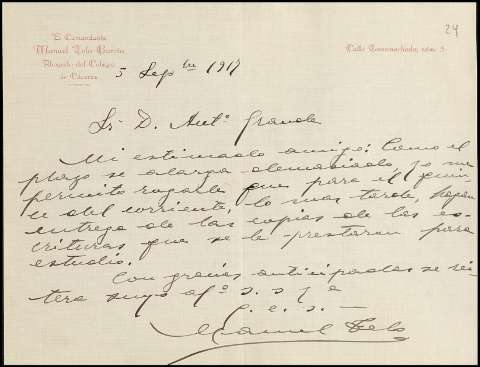 24
El Comandante
Manuel Telo García
Abogado del Colegio
de Cáceres
Calle Torremochada, núm. 3
5 Sepbre 1917
Sr. D. Antº Grande
Mi estimado amigo: Como el
plazo se alarga demasiado yo me
permito rogarle que para el quin-
ce del corriente, lo mas tarde, hagan
entrega de las copias de las es-
crituras que se le prestaron para
estudio.
Con gracias anticipadas se rei-
tera suyo afº s. s. q e
p. e. s. —
Manuel Telo